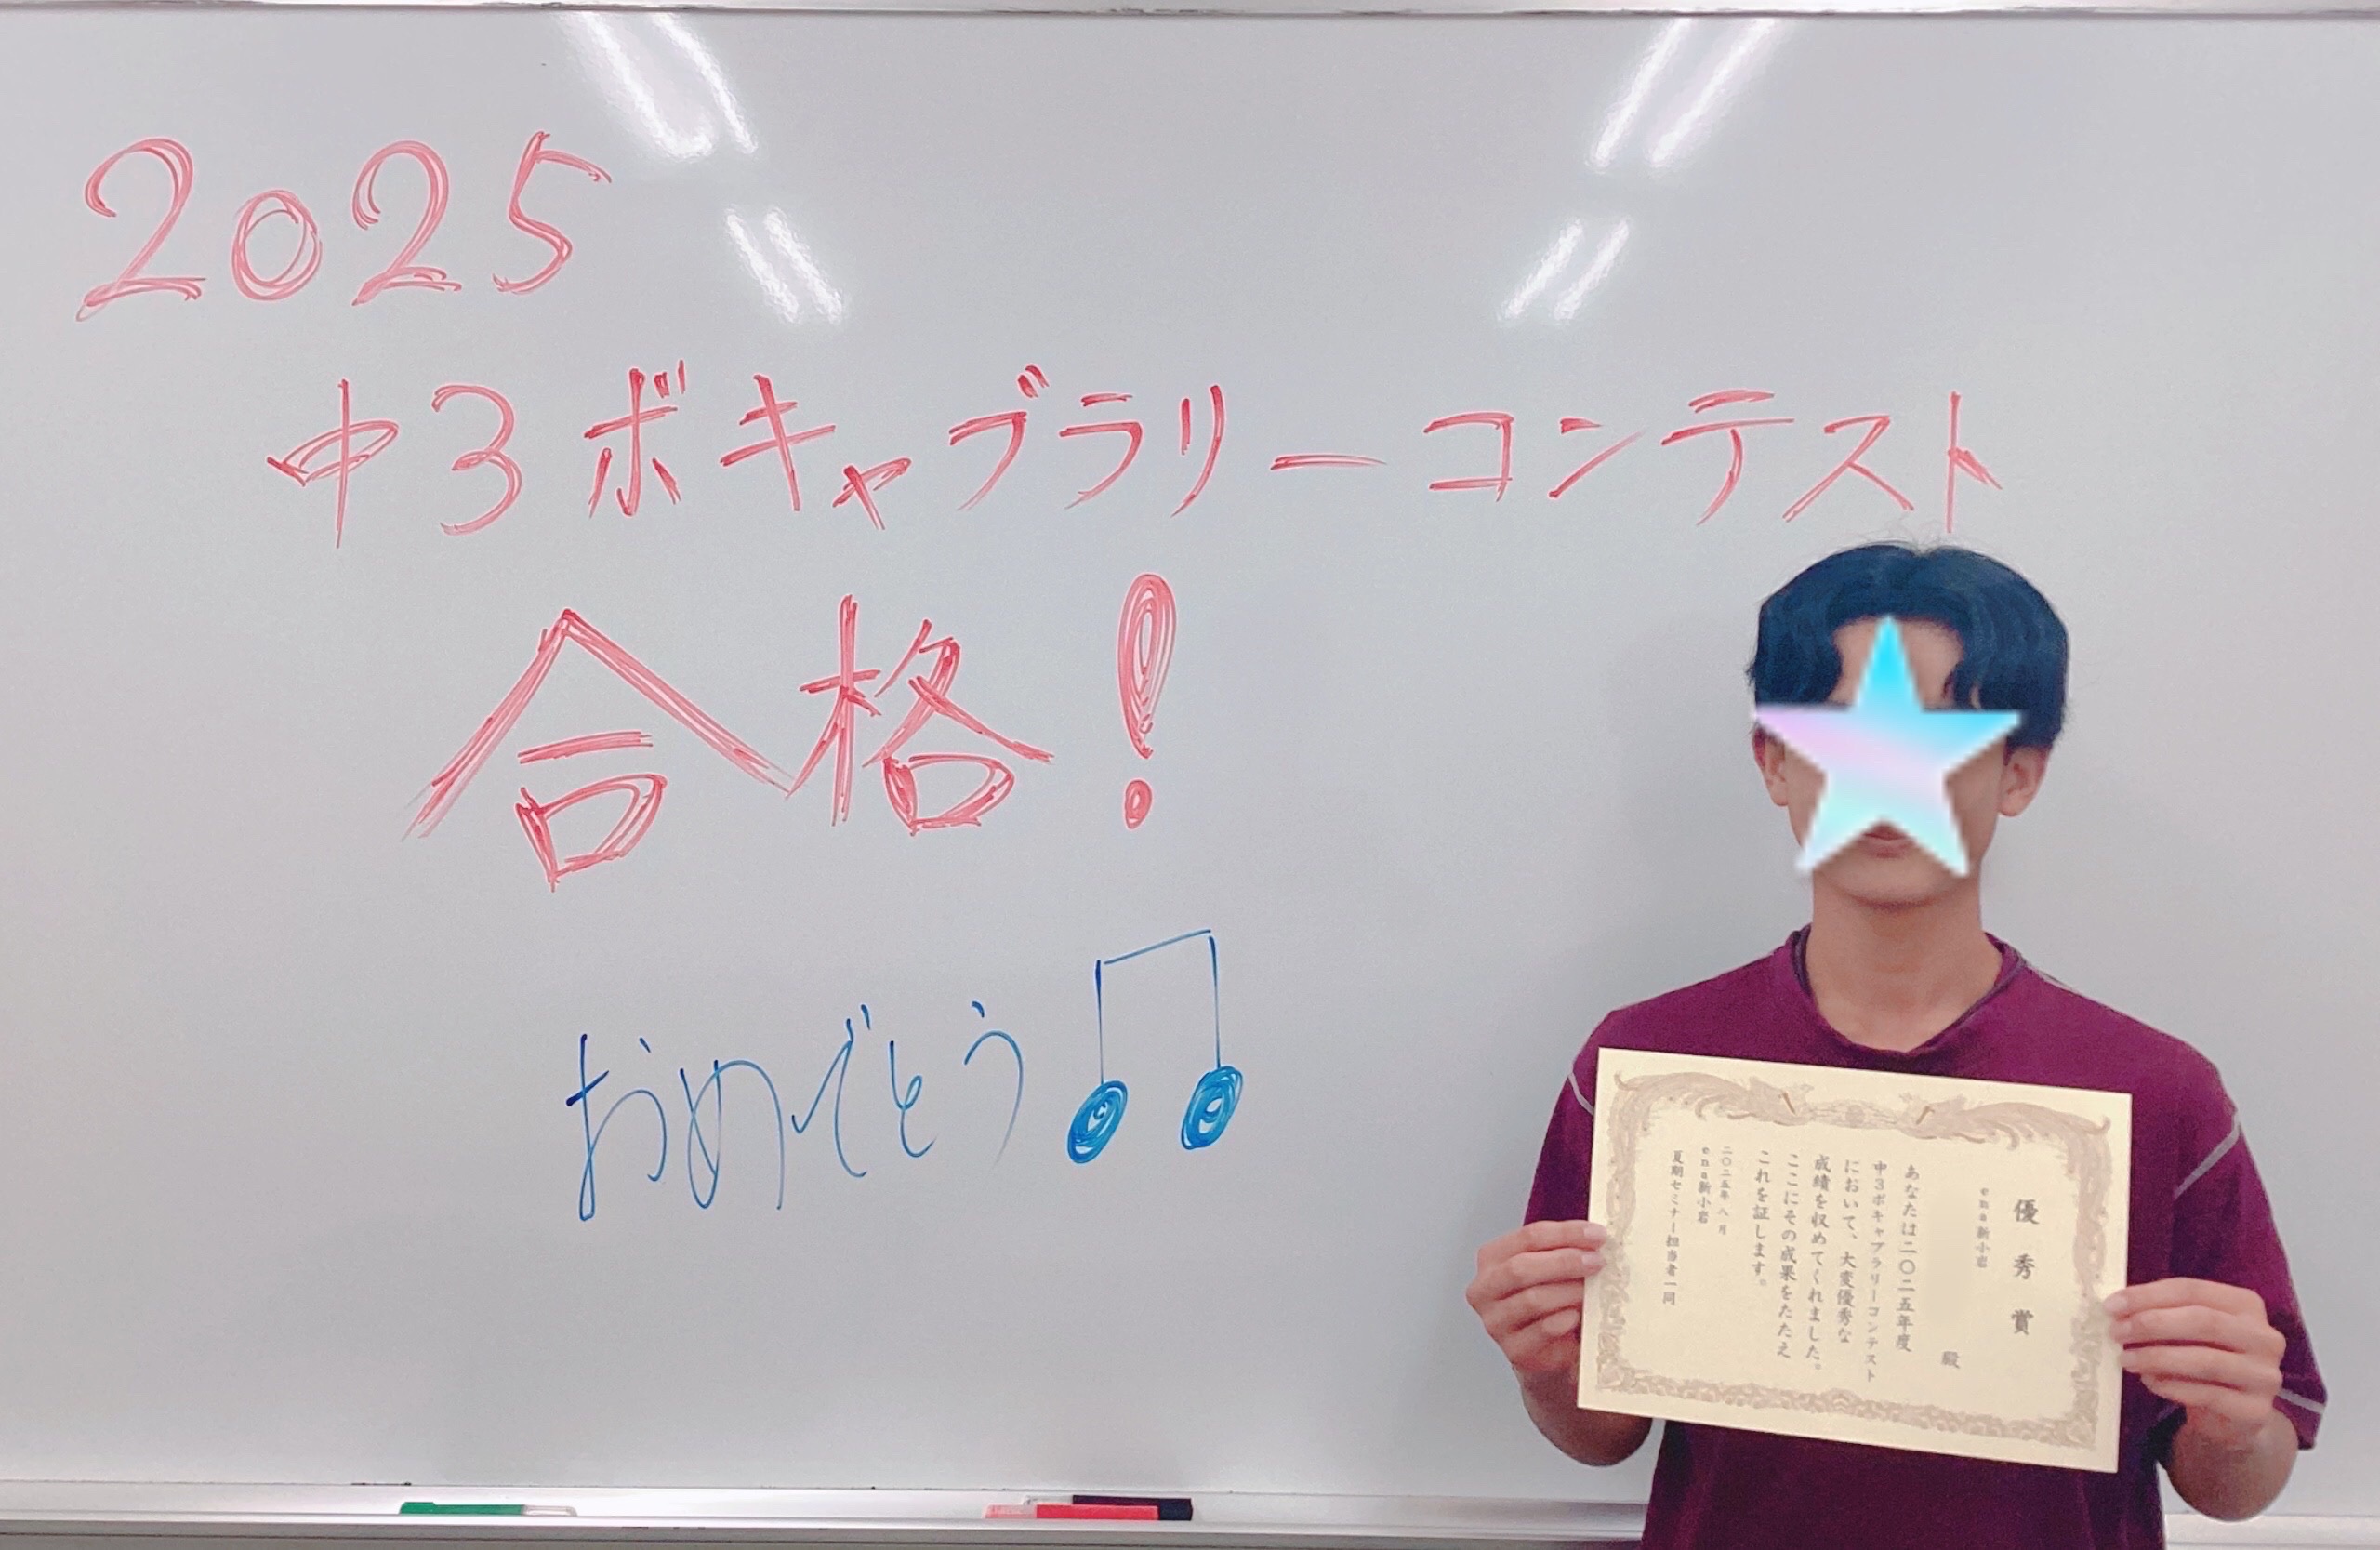 2025
中3ボキャブラリーコンテスト
合格!
おめでとう
優秀賞
ena新小岩
殿
あなたは二〇二五年度
中3ボキャブラリーコンテスト
において、大変優秀な
成績を収めてくれました。
ここにその成果をたたえ
これを証します。
二〇二五年八月
ena新小岩
夏期セミナー担当者一同